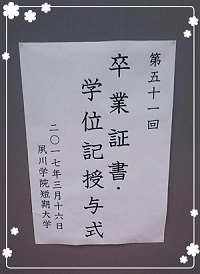 第五十一回
卒業証書・
学位記授与式
二〇一七年三月十六日
夙川学院短期大学